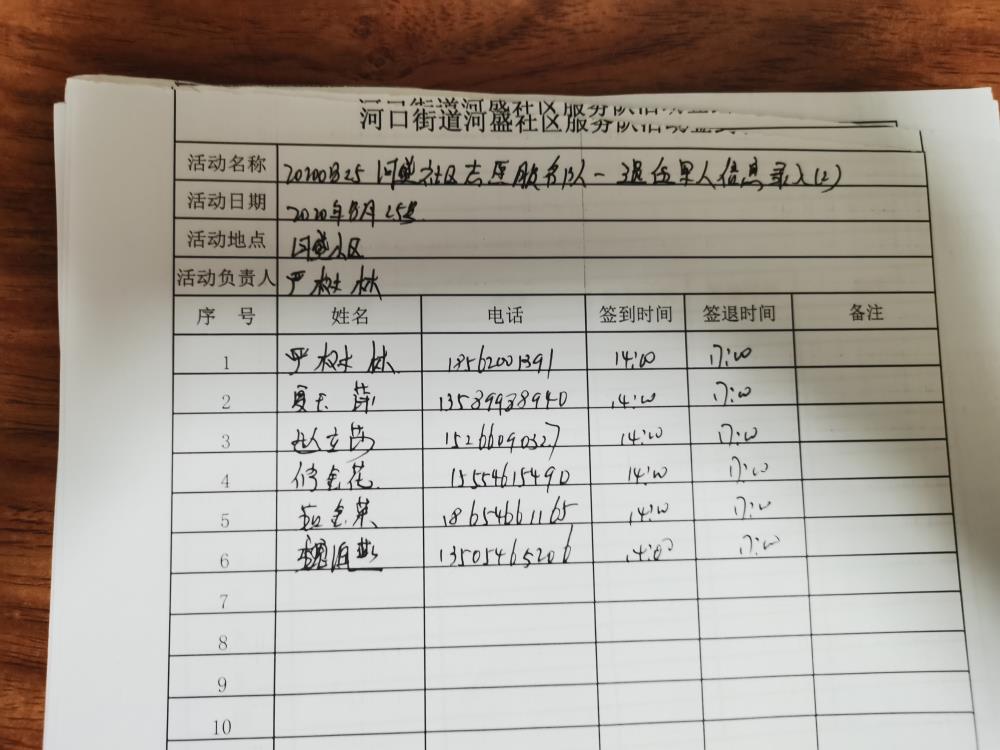 河口街道河盛社区服务队活动签
河口街道河盛社区服务队活动签
活动名称 20200825 河盛社区志愿服务队-退伍军人信息录入(2)
活动日期 2020年8月25日
活动地点 河盛社区
活动负责人 严树林
序 号 姓名 电话 签到时间 签退时间 备注
1 严树林 18562001391 14:00 17:00
2 13589938940 14:00 17:00
3 15266090327 14:00 17:00
4 修金花 15554615490 14:00 17:00
5 18654661165 14:00 17:00
6 13505465206 14:00 17:00
7
8
9
10